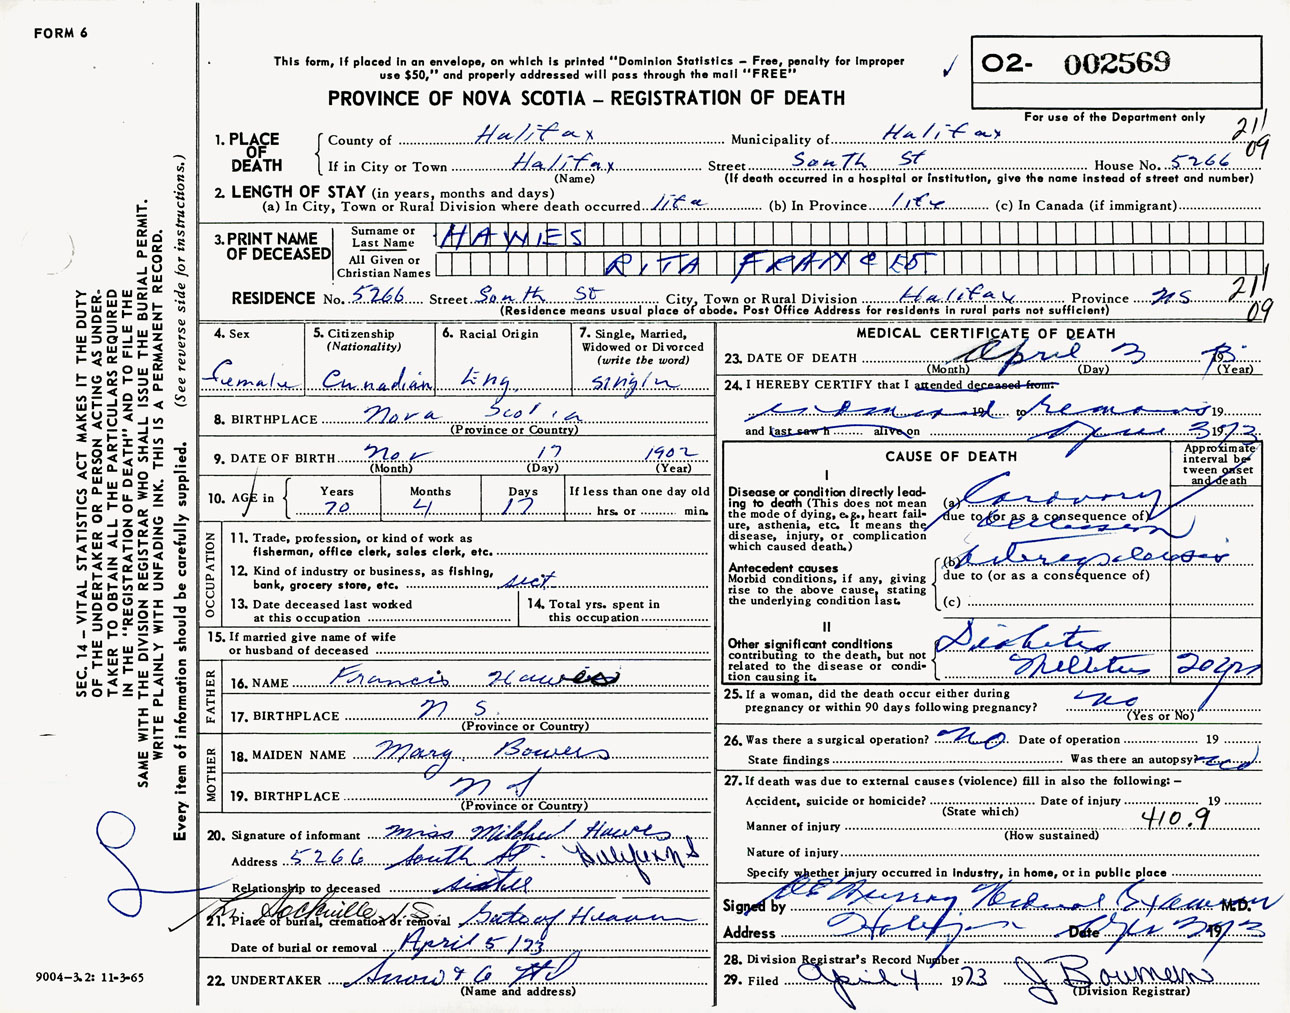 FORM 6
This form, if placed in an envelope, on which is printed "Dominion Statistics – Free, penalty for improper
use $50," and properly addressed will pass through the mail "FREE"
PROVINCE OF NOVA SCOTIA – REGISTRATION OF DEATH
✓ 02- 002569
For use of the Department only
211
09
1. PLACE OF DEATH
County of Halifax Municipality of Halifax
If in City or Town Halifax Street South St House No. 5266
(Name) (If death occurred in a hospital or institution, give the name instead of street and number)
2. LENGTH OF STAY (in years, months and days)
(a) In City, Town or Rural Division where death occurred life (b) In Province life (c) In Canada (if immigrant)
3. PRINT NAME OF DECEASED
Surname or Last Name HAWES
All Given or Christian Names RITA FRANCES
RESIDENCE No. 5266 Street South St City, Town or Rural Division Halifax Province NS
211
09
(Residence means usual place of abode. Post Office Address for residents in rural parts not sufficient)
4. Sex
female
5. Citizenship
(Nationality)
Canadian
6. Racial Origin
Eng
7. Single, Married,
Widowed or Divorced
(write the word)
single
8. BIRTHPLACE Nova Scotia
(Province or Country)
9. DATE OF BIRTH Nov 17 1902
(Month) (Day) (Year)
10. AGE in
Years Months Days If less than one day old
70 4 17 hrs. or min.
OCCUPATION
11. Trade, profession, or kind of work as
fisherman, office clerk, sales clerk, etc.
12. Kind of industry or business, as fishing,
bank, grocery store, etc. sect
13. Date deceased last worked
at this occupation
14. Total yrs. spent in
this occupation
15. If married give name of wife
or husband of deceased
FATHER
16. NAME Francis Hawes
17. BIRTHPLACE N S.
(Province or Country)
MOTHER
18. MAIDEN NAME Mary Bowes
19. BIRTHPLACE N S
(Province or Country)
20. Signature of informant Miss Mildred Hawes
Address 5266 South St. Halifax N S
Relationship to deceased sister
Sackville N.S.
21. Place of burial, cremation or removal Gate of Heaven
Date of burial or removal April 5/73
22. UNDERTAKER Snow & Co Ltd
(Name and address)
MEDICAL CERTIFICATE OF DEATH
23. DATE OF DEATH April 3 19
(Month) (Day) (Year)
24. I HEREBY CERTIFY that I attended deceased from:
19 to remains 19
and last saw h alive on April 3 1973
CAUSE OF DEATH
Approximate
interval be-
tween onset
and death
I
Disease or condition directly lead-
ing to death (This does not mean
the mode of dying, e.g., heart fail-
ure, asthenia, etc. It means the
disease, injury, or complication
which caused death.)
(a) Coronary
due to (or as a consequence of)
occlusion
Antecedent causes
Morbid conditions, if any, giving
rise to the above cause, stating
the underlying condition last.
(b)
due to (or as a consequence of)
(c)
II
Other significant conditions
contributing to the death, but not
related to the disease or condi-
tion causing it.
Diabetes
Mellitus 20 yrs
25. If a woman, did the death occur either during
pregnancy or within 90 days following pregnancy? No
(Yes or No)
26. Was there a surgical operation? No. Date of operation 19
State findings Was there an autopsy?
27. If death was due to external causes (violence) fill in also the following: –
Accident, suicide or homicide? Date of injury 19
(State which)
410.9
Manner of injury
(How sustained)
Nature of injury
Specify whether injury occurred in industry, in home, or in public place
Signed by Murray Medical Examiner M.D.
Address Halifax Date Apr 3 1973
28. Division Registrar's Record Number
29. Filed April 4 1973 J Bowmen
(Division Registrar)
SEC. 14 – VITAL STATISTICS ACT MAKES IT THE DUTY
OF THE UNDERTAKER OR PERSON ACTING AS UNDER-
TAKER TO OBTAIN ALL THE PARTICULARS REQUIRED
IN THE "REGISTRATION OF DEATH" AND TO FILE THE
SAME WITH THE DIVISION REGISTRAR WHO SHALL ISSUE THE BURIAL PERMIT.
WRITE PLAINLY WITH UNFADING INK. THIS IS A PERMANENT RECORD.
Every item of information should be carefully supplied. (See reverse side for instructions.)
9004–3.2: 11-3-65